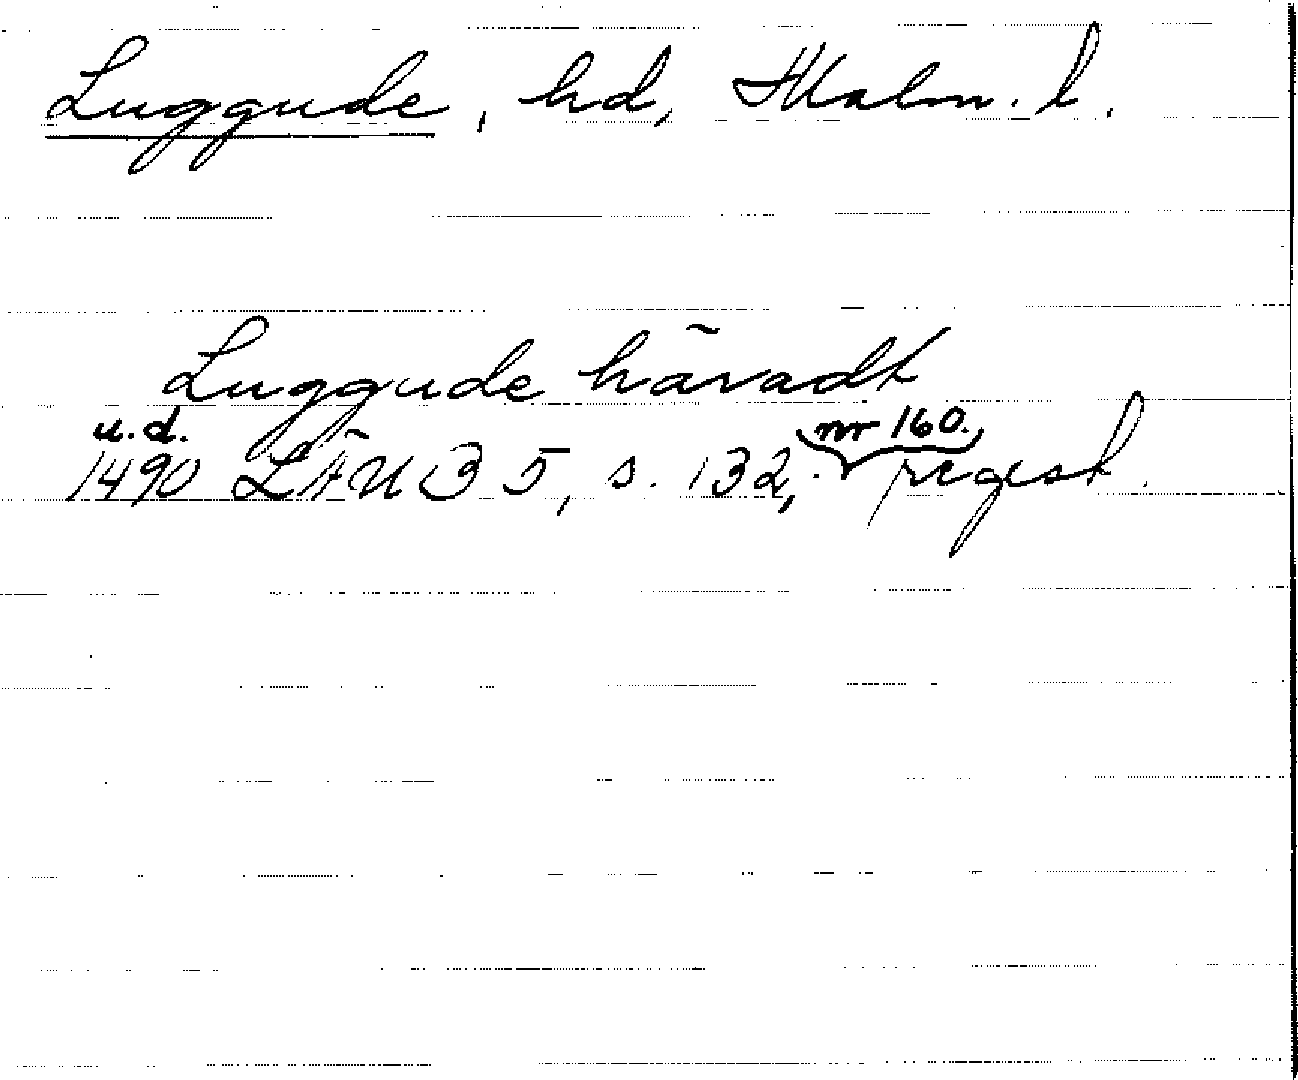 Luggude, hd, Malm. l.
Luggude häradt
u.d. nr 160.
1490 LÄUB 5, s. 132, regest.